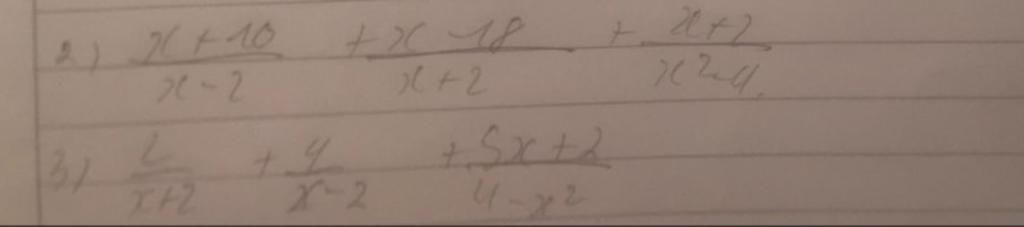 2) (x+10)/(x-2) + (x-18)/(x+2) + (x+2)/(x²-4)
3) 2/(x+2) + 4/(x-2) + (5x+2)/(4-x²)